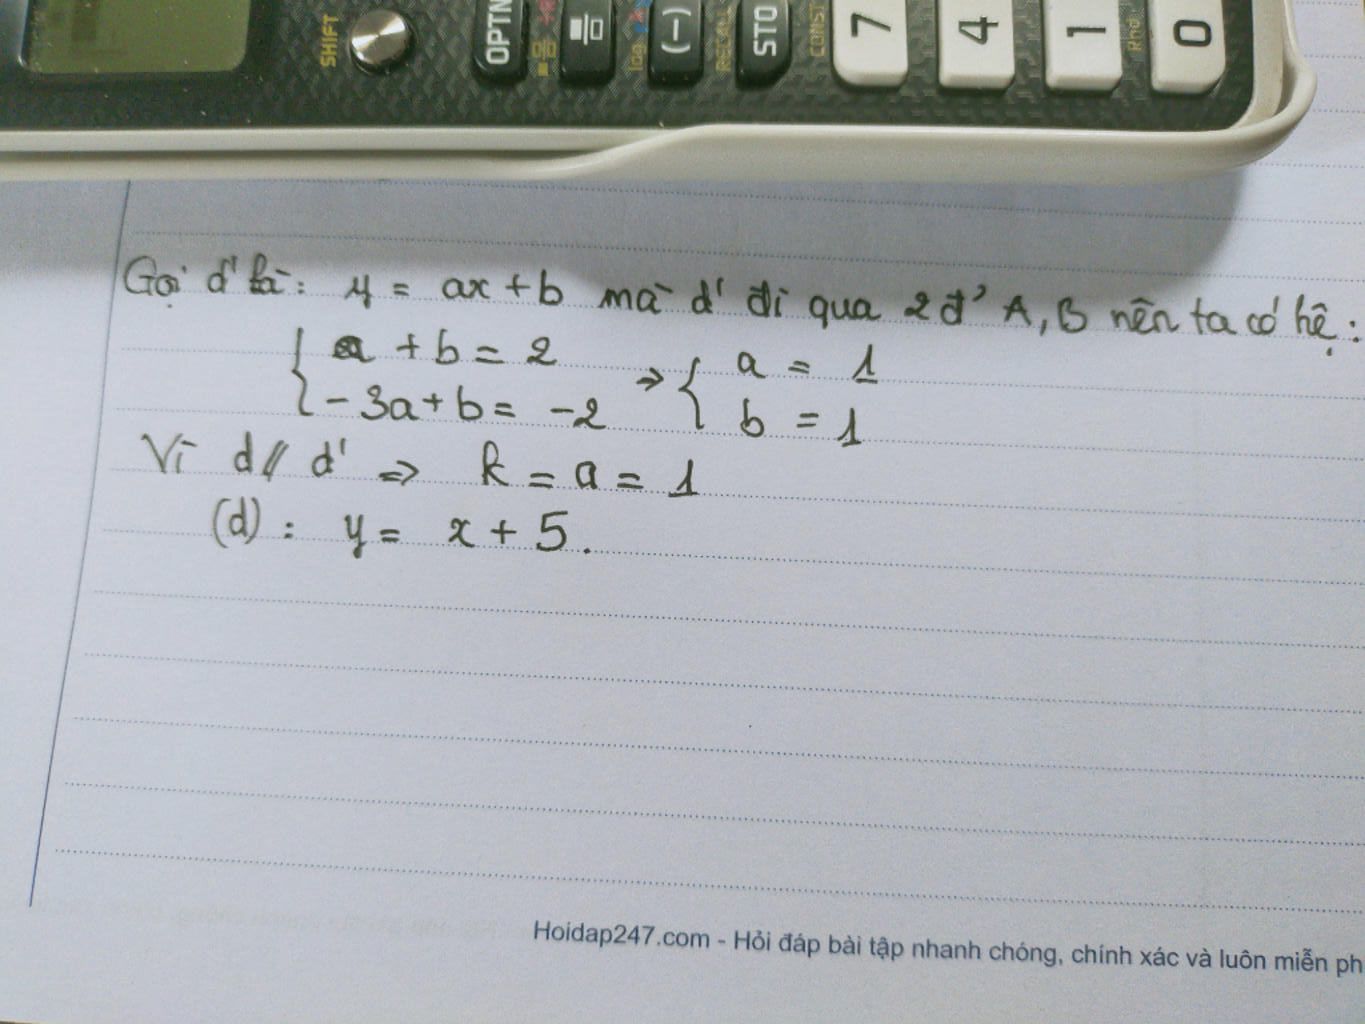 SHIFT
OPTN
(−)
STO
CONST
7
4
1
Rnd
0
Gọi d' là: y = ax + b mà d' đi qua 2 đ' A, B nên ta có hệ:
{ a + b = 2
-3a + b = -2 => { a = 1
b = 1
Vì d // d' => k = a = 1
(d): y = x + 5.
Hoidap247.com - Hỏi đáp bài tập nhanh chóng, chính xác và luôn miễn ph